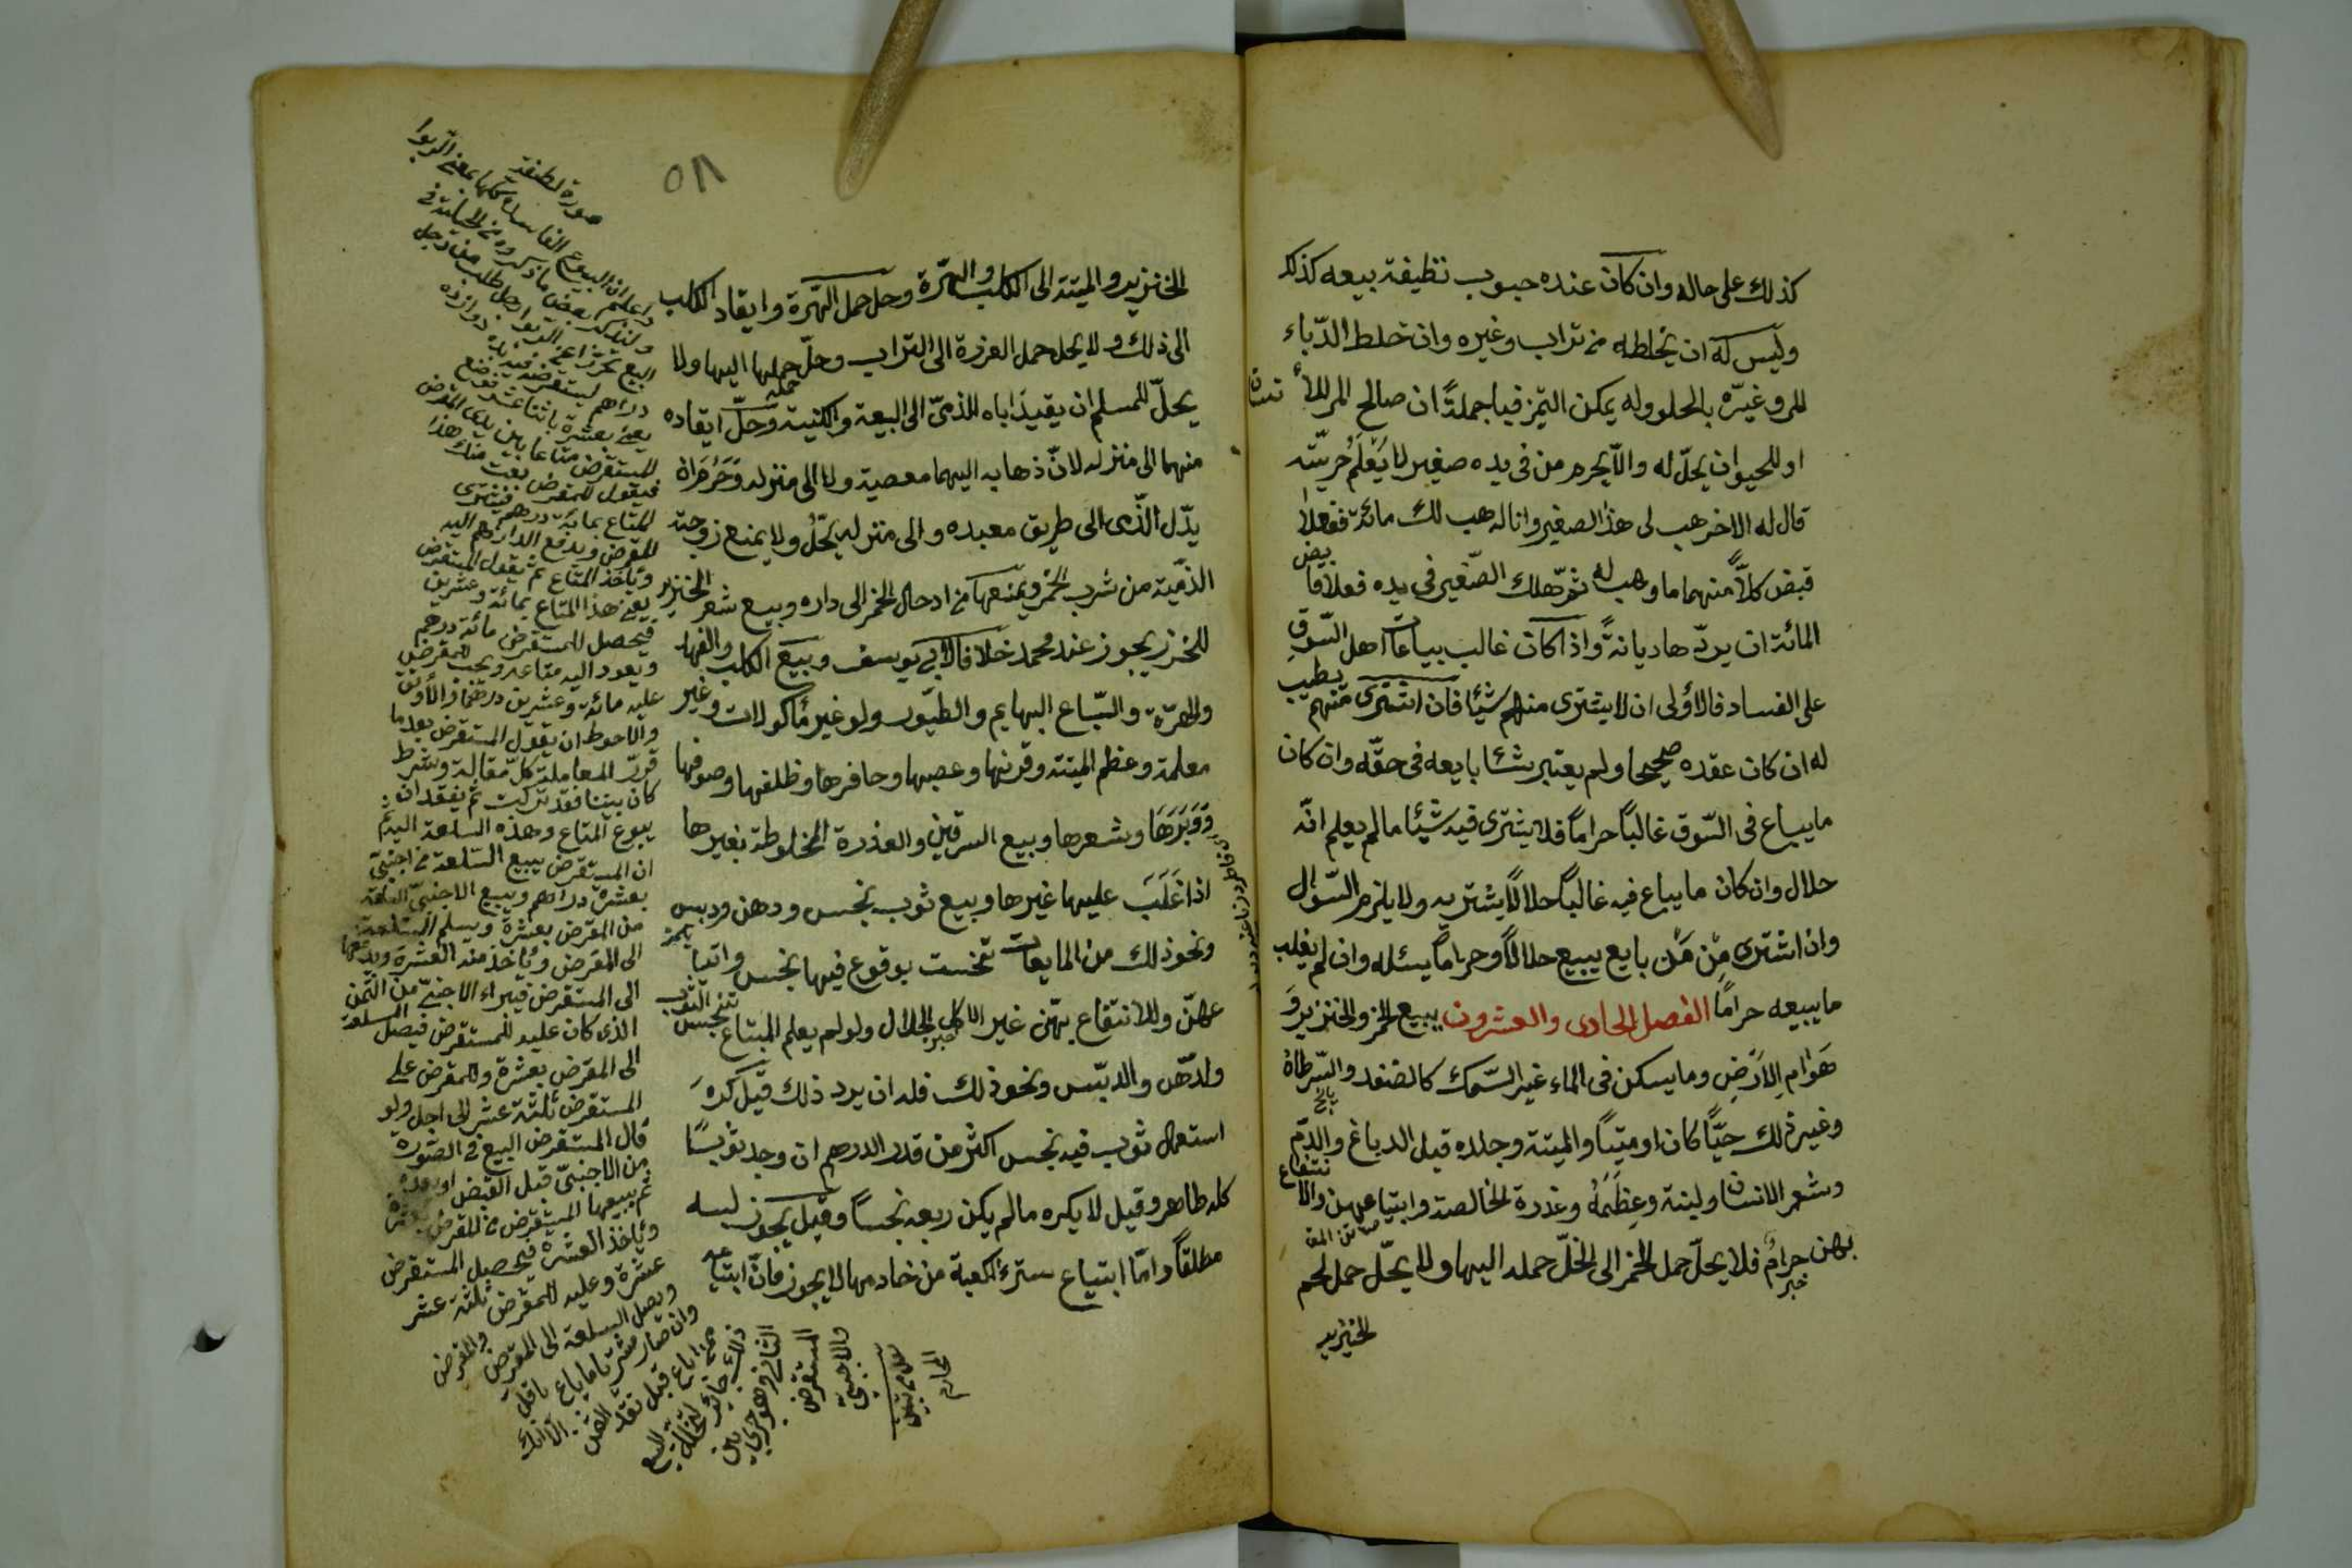 كذلك على حاله وان كان عنده حبوب نظيفة بيعه كذلك
وليس له ان يخلطه من تراب وغيره وان خلط الدباء
المر وغيره بالحلو وله يمكن التمز فيباع جملةً ان صالح المر للانسان
او للحيوان يحلّ له والّا يحرم من فى يده صغير لا يَعْلَمُ حريّته
قال له الاخر هب لى هذا الصغير وانا له هب لك مائة ففعلا
قبض كلاًّ منهما ما وهب له ثمّ هلك الصّغير فى يده فعلا قابض
المائة ان يردّها ديانةً واذا كان غالب بياعات اهل السّوق
على الفساد فالاولى ان لا يشترى منهم شيئًا فان اشترى منهم يطيب
له ان كان عقده صحيحا ولم يعتبر بشا بايعه فى حقّه وان كان
ما يباع فى السّوق غالبًا حرامًا فلا يشترى فيه شيئًا ما لم يعلم انّه
حلال وان كان ما يباع فيه غالبًا حلالًا يشتريه ولا يلزم السّؤال
وان اشترى مِنْ مَنْ بايع يبيع حلالًا وحرامًا يسئله وان لم يغلب
ما يبيعه حرامًا الفصل الحادى والعشرون يبيع الخمر والخنزير وَ
هَوَامِ الاَرَضِ وما يسكن فى الماء غير السّمك كالضفدع والسّرطان
وغير ذلك حيًّا كان او ميتًا والميتة وجلده قبل الدباغ والدّم
وشعر الانسان ولبنه وعِظَمَهُ وعذرة الخالصة وابتياعهن والانتفاع
بهن حرامٌ فلا يحلّ حمل الخمر الى الخلّ حمله اليها ولا يحلّ حمل لحم
خبر
الخنزير
٥٨
الخنزير والميتة الى الكلب والهرّة وحل حمل الهرّة وايقاد الكلب
الى ذلك ولا يحل حمل العذرة الى التراب وحلّ حمله اليها ولا
يحلّ للمسلم ان يقيدَ اباه الذمىّ الى البيعة والكنيسة وَحلّ ايقاده
منهما الى منزله لانّ ذهابه اليهما معصية ولا الى منزله وَحَرُمَ ان
يدّل الذّمى الى طريق معبده والى منزله يحّلُ ولا يمنع زوجته
الذمّية من شرب الخمر ويمنعها من ادخال الخمر الى داره وبيع شعر الخنزير
للخرز يجوز عند محمد خلافا لابى يوسف وبيع الكلب والفهد
والهرّة والسّباع البهايم والطيور ولو غير مأكولات وغير
معلمة وعظم الميتة وقرنها وعصبها وحافرها وظلفها وصوفها
وَوَبَرَهَا وشعرها وبيع السرقين والعذرة المخلوطة بغيرها
اذا غَلَبَ عليها غيرها وبيع ثوب نجس ودهن ودبس
ونحو ذلك من المايعات تنجست بوقوع فيها نجس وابتياعهنّ
والانتفاع بهنّ غير الاكل الحلال ولو لم يعلم المبتاع تنجس الثوب
والدّهن والدبس ونحو ذلك فله ان يرد ذلك قيل كَرِهَ
استعمال ثوب فيه نجس اكثر من قدر الدرهم ان وجد ثوبًا
كله طاهر وقيل لا يكره ما لم يكن ربعه نجسًا وقيل يجوز لبسه
مطلقًا وامّا ابتياع ستر الكعبة من خادمها لا يجوز فان ابتاعه
صورة لطيفة
واعلم ان البيوع الفاسدة كلها بمعنى الربوا
ولنذكر بعض ما ذكروه من الحيلة فى
البيع تحرّزا عن الربوا رجل طلب من رجل
دراهم ليستقرضه
يعنى بعشرة باثنا عشر فوضع
المستقرض متاعا بين يدى المقرض
فيقول للمقرض بعت منك هذا
المتاع بمائة درهم فيشترى
المقرض ويدفع الدراهم اليه
وياخذ المتاع ثم يقول المستقرض
بعنى هذا المتاع بمائة وعشرين
فيحصل للمستقرض مائة درهم
ويعود اليه متاعه ويجب للمقرض
عليه مائة وعشرين درهمًا والاوثق
والاحوط ان يقول المستقرض بعد ما
قرّر المعاملة كلّ مقالة وشرط
كان بيننا فقد تركت ثم يعقدان
بيوع المتاع وهذه السلعة اليه ثم
ان المستقرض يبيع السّلعة من اجنبىّ
بعشرة دراهم ويبيع الاجنبىّ السلعة
من المقرض بعشرة ويسلم السّلعة
الى المقرض وياخذ منه العشرة ويدفعها
الى المستقرض فيبراء الاجنبىّ من الثّمن
الذى كان عليه للمستقرض فيصل السلعة
الى المقرض بعشرة وللمقرض على
المستقرض ثلثة عشر الى اجل ولو
قال المستقرض البيع فى الصّورة
من الاجنبىّ قبل القبض او بعده
ثم يبيعها المستقرض من المقرض بعشرة
وياخذ العشرة فيحصل المستقرض
عشرة وعليه للمقرض ثلثة عشر
ويصل السلعة الى المقرض والمقرض
وان صار مشتريا ما باع باقل
مما باع قبل نقد الثمن الّا ان
ذلك جائز لتخلّل البيع
الثانى وهو جرى بين
المستقرض
والاجنبىّ